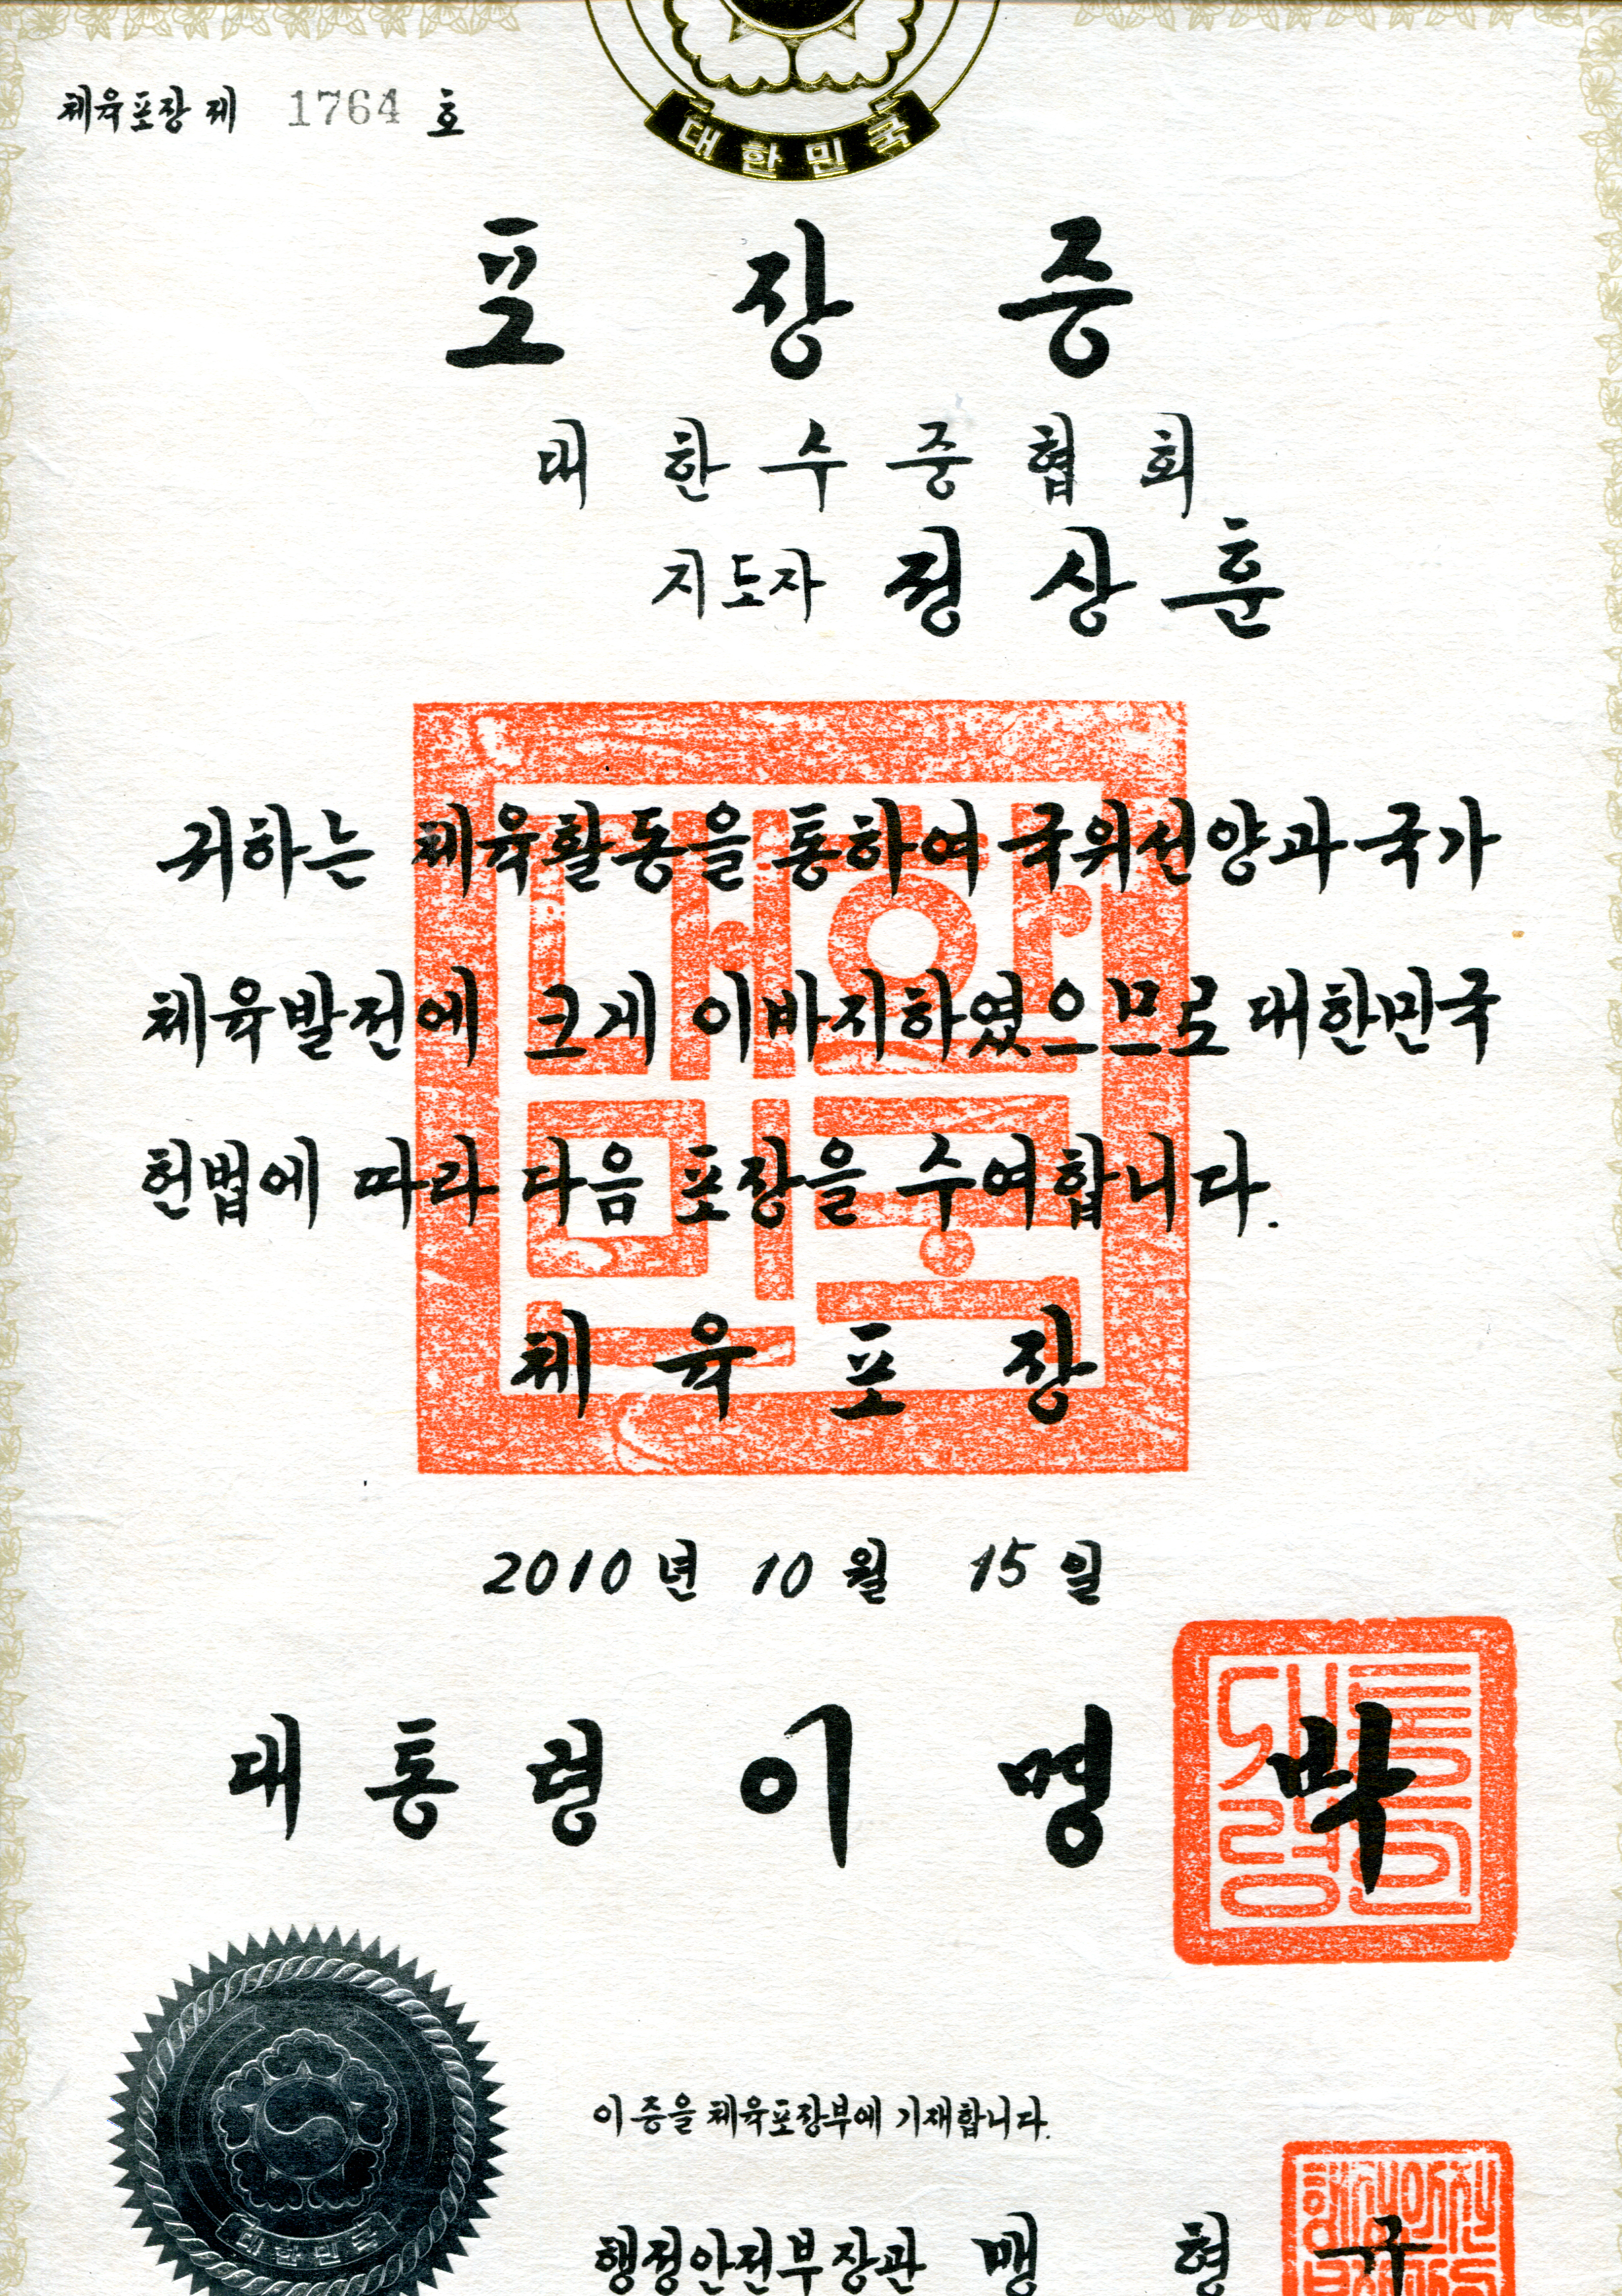 체육포장 제 1764 호
대한민국
포장증
대한수중협회
지도자 정상훈
귀하는 체육활동을 통하여 국위선양과 국가
체육발전에 크게 이바지하였으므로 대한민국
헌법에 따라 다음 포장을 수여합니다.
체육포장
2010년 10월 15일
대통령 이명박
이 증을 체육포장부에 기재합니다.
대한민국
행정안전부장관 맹형규